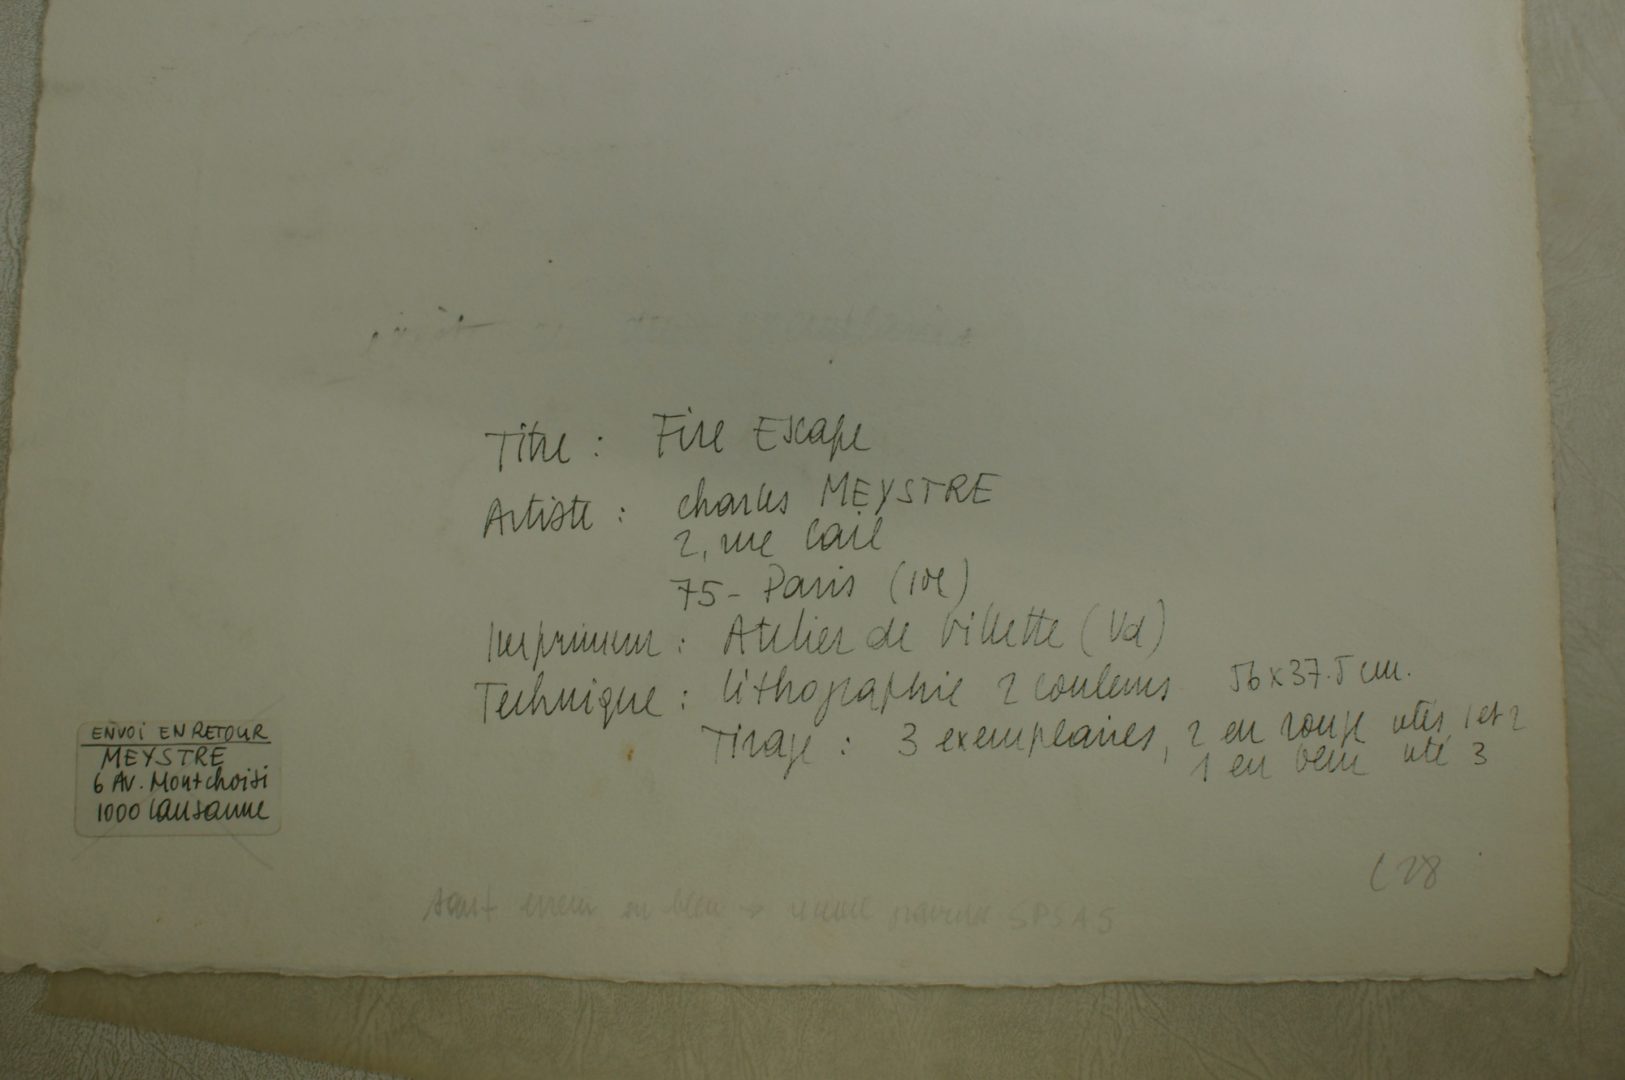 Titre : Fire Escape
Artiste : Charles MEYSTRE
2, rue Cail
75 - Paris (10e)
Imprimeur : Atelier de Villette (Vd)
Technique : lithographie 2 couleurs 56x37.5 cm.
Tirage : 3 exemplaires, 2 en rouge 1 et 2
1 en bleu 3
ENVOI EN RETOUR
MEYSTRE
6 AV. Montchoisi
1000 Lausanne
28
sauf erreur en bleu → SPSAS